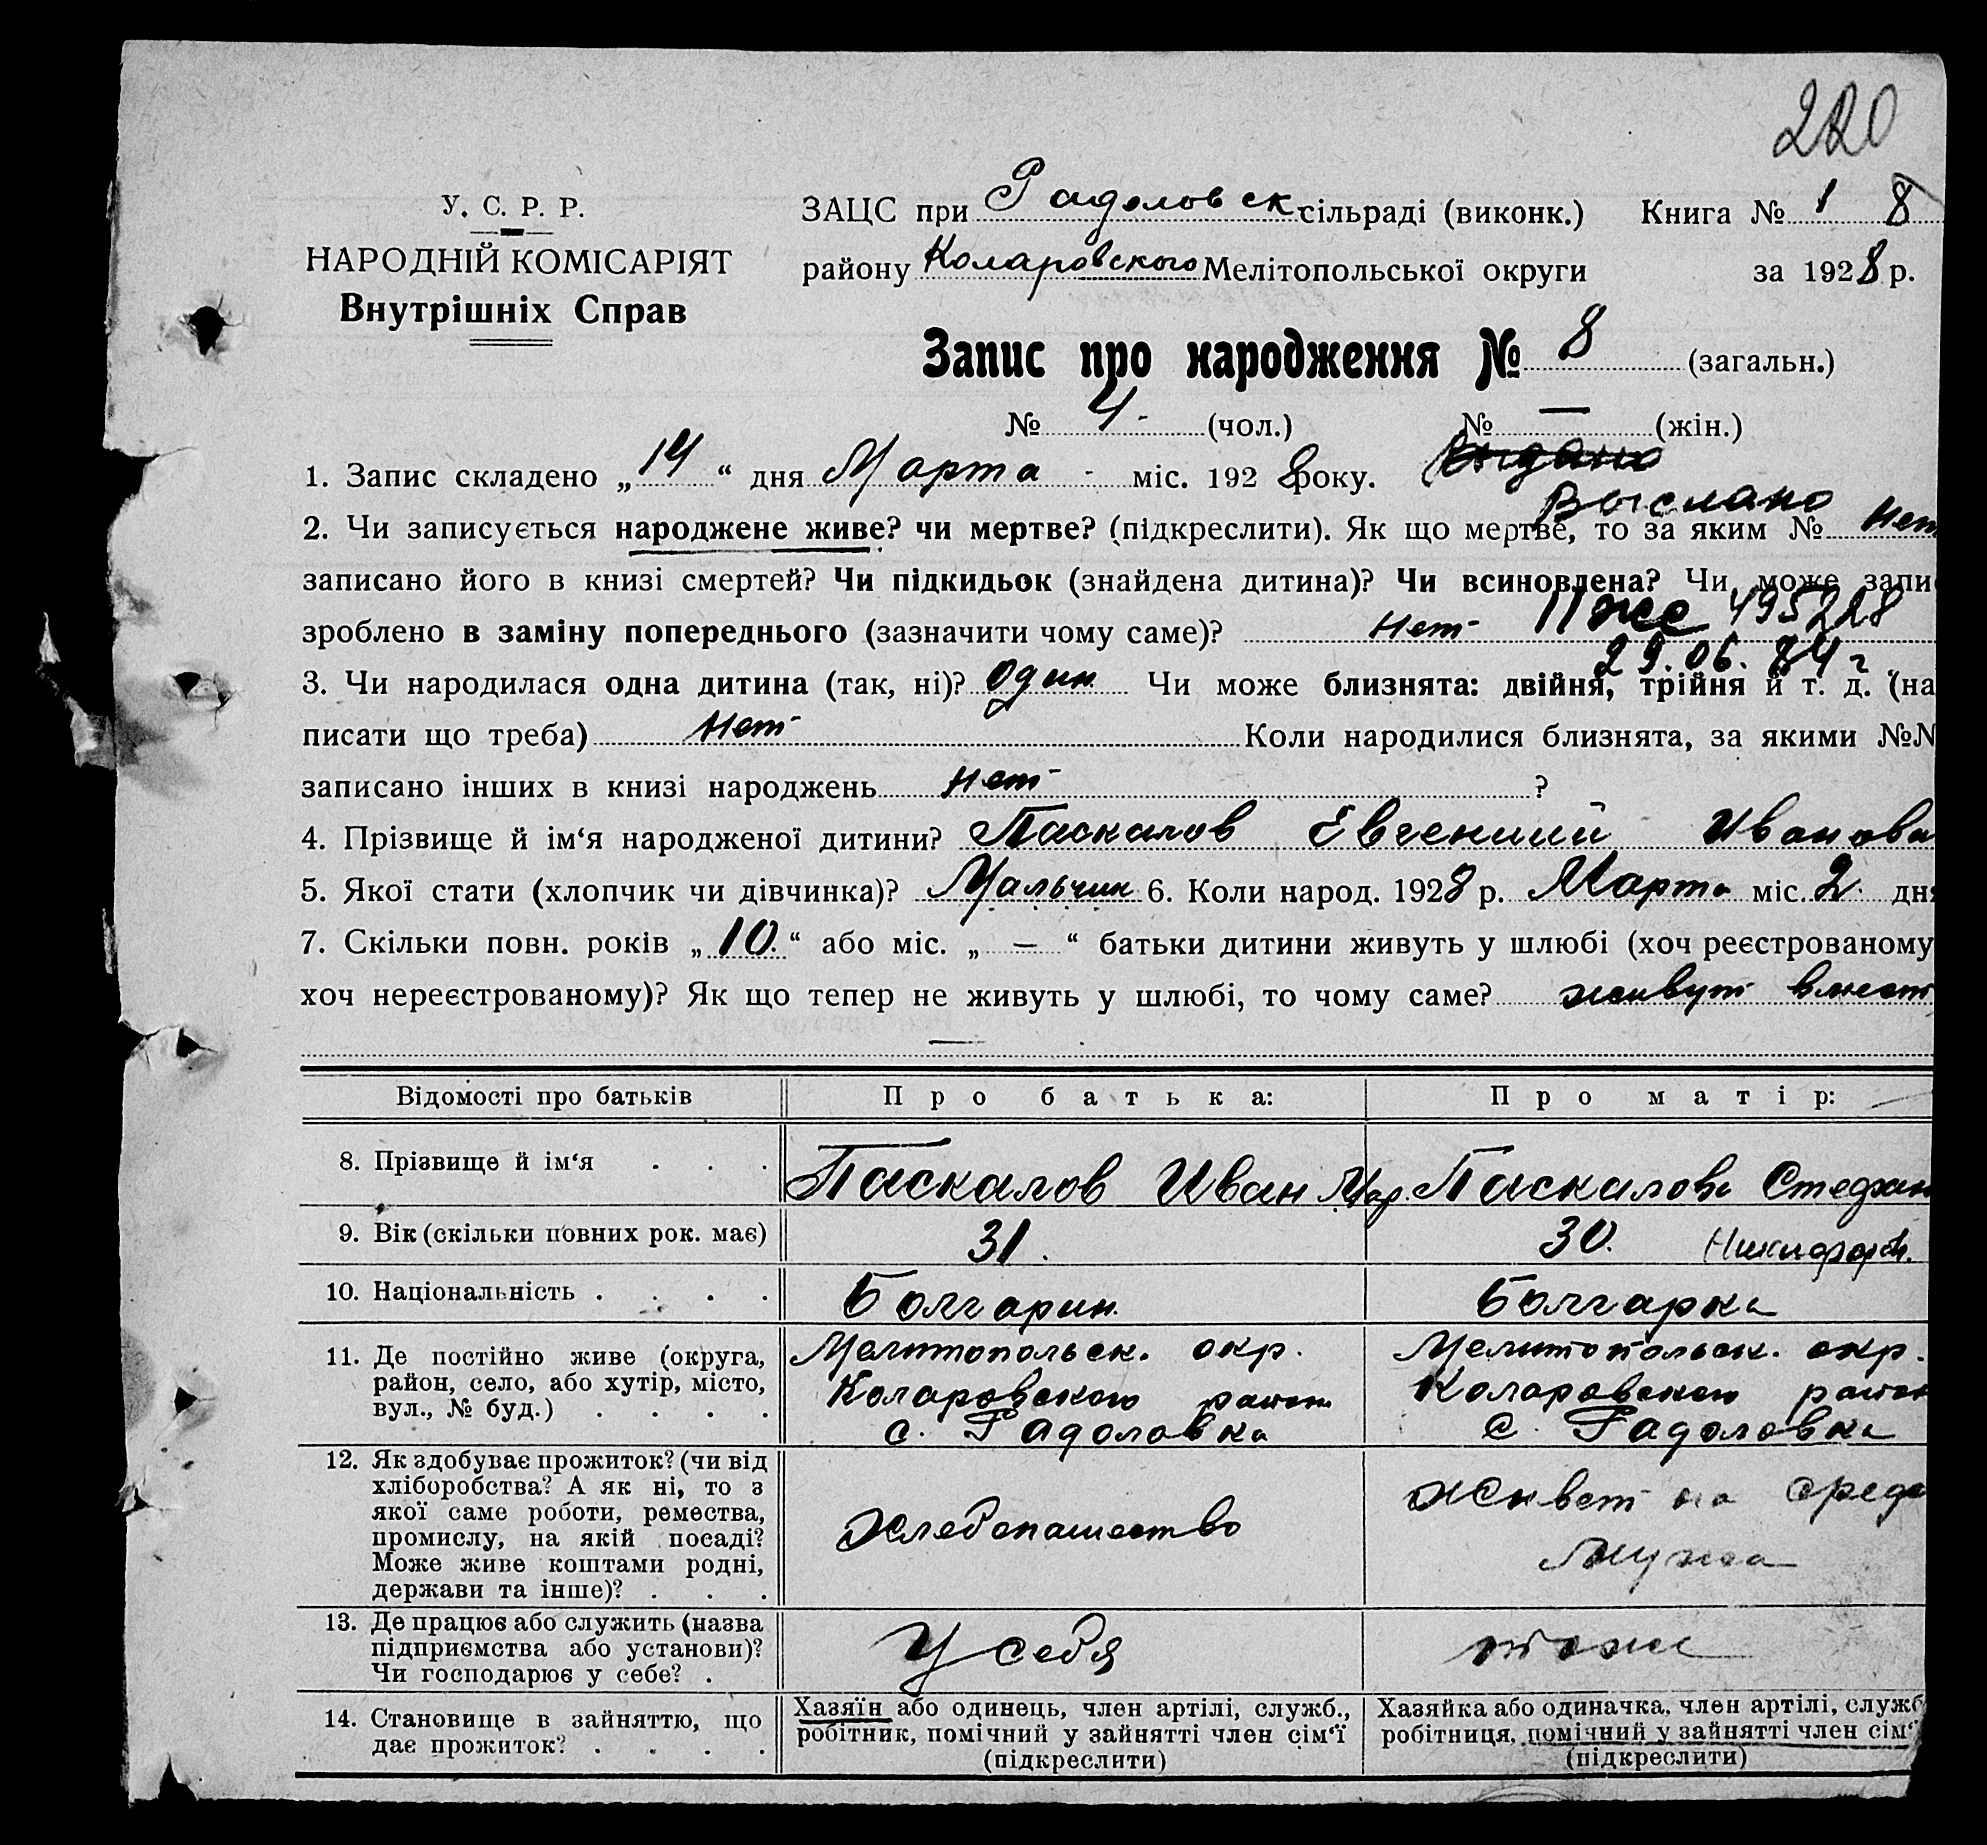 220
У. С. Р. Р.
НАРОДНІЙ КОМІСАРІЯТ
Внутрішніх Справ
ЗАЦС при Радоловск сільраді (виконк.) Книга № 1 8
району Коларовского Мелітопольської округи за 1928 р.
Запис про народження № 8 (загальн.)
№ 4 - (чол.) № — (жін.)
1. Запис складено „ 14 “ дня Марта - міс. 1928 року. Выдано
Выслано
2. Чи записується народжене живе? чи мертве? (підкреслити). Як що мертве, то за яким № нет
записано його в книзі смертей? Чи підкидьок (знайдена дитина)? Чи всиновлена? Чи може запи
зроблено в заміну попереднього (зазначити чому саме)? нет 495228
29.06.84 г.
3. Чи народилася одна дитина (так, ні)? один Чи може близнята: двійня, трійня й т. д. (на
писати що треба) нет Коли народилися близнята, за якими №N
записано інших в книзі народжень нет ?
4. Прізвище й ім‘я народженої дитини? Паскалов Евгений Иванови
5. Якої стати (хлопчик чи дівчинка)? Мальчик 6. Коли народ. 1928 р. Марта міс. 2 дня
7. Скільки повн. років „ 10. “ або міс. „ — “ батьки дитини живуть у шлюбі (хоч реєстрованому
хоч нереєстрованому)? Як що тепер не живуть у шлюбі, то чому саме? живут вмест
—
Відомості про батьків Про батька: Про матір:
8. Прізвище й ім‘я . . . Паскалов Иван Мар. Паскалова Стефан
9. Вік (скільки повних рок. має) 31. 30. Никифоров.
10. Національність . . . . Болгарин. Болгарка
11. Де постійно живе (округа, Мелитопольск. окр. Мелитопольск. окр.
район, село, або хутір, місто, Коларовского район Коларовского район
вул., № буд.) . . . . с. Радоловка с. Радоловка
12. Як здобуває прожиток? (чи від
хліборобства? А як ні, то з живет на средс
якої саме роботи, ремества, хлебопашество
промислу, на якій посаді? мужа
Може живе коштами родні,
держави та інше)? . . .
13. Де працює або служить (назва
підприємства або установи)? У себя тоже
Чи господарює у себе? .
14. Становище в зайняттю, що Хазяїн або одинець, член артілі, служб., Хазяйка або одиначка, член артілі, служб
дає прожиток? . . . . робітник, помічний у зайнятті член сім‘ї робітниця, помічний у зайнятті член сім‘
(підкреслити) (підкреслити)